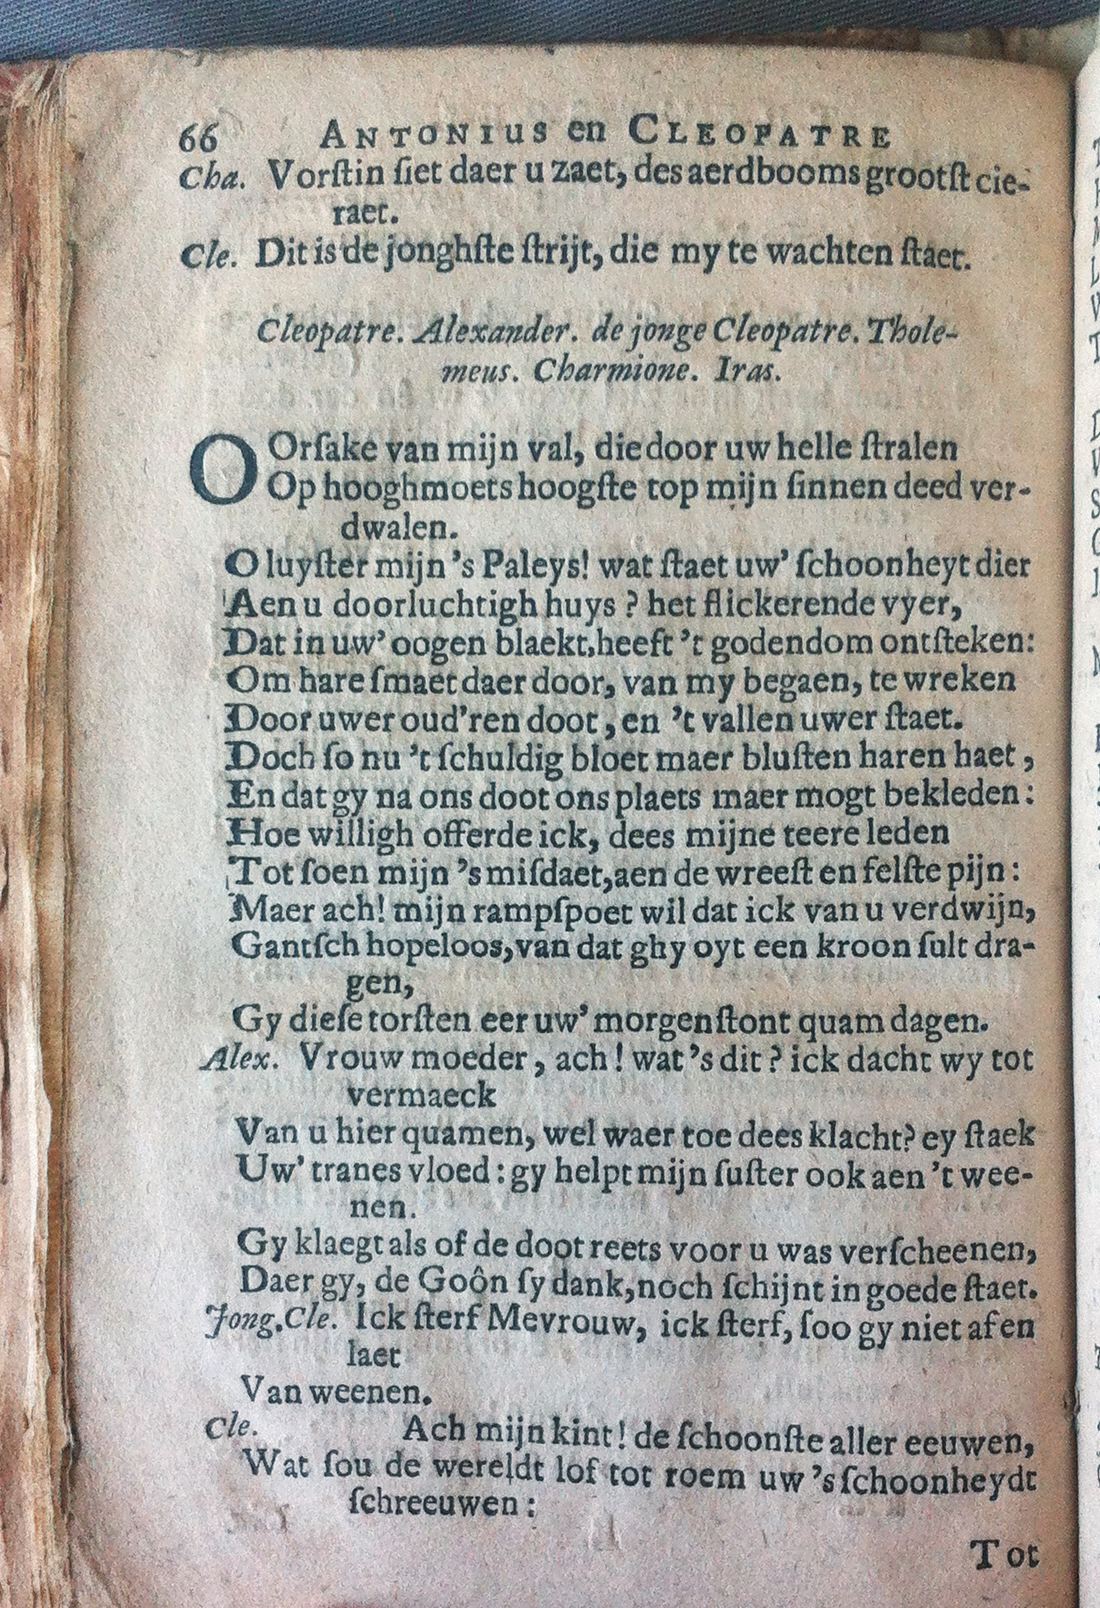 66 ANTONIUS en CLEOPATRE
Cha. Vorſtin ſiet daer u zaet, des aerdbooms grootſt cie-
raet.
Cle. Dit is de jonghſte ſtrijt, die my te wachten ſtaet.
Cleopatre. Alexander. de jonge Cleopatre. Thole-
meus. Charmione. Iras.
OOrſake van mijn val, die door uw helle ſtralen
Op hooghmoets hoogſte top mijn ſinnen deed ver-
dwalen.
O luyſter mijn 's Paleys! wat ſtaet uw' ſchoonheyt dier
Aen u doorluchtigh huys? het flickerende vyer,
Dat in uw' oogen blaekt, heeft 't godendom ontſteken:
Om hare ſmaet daer door, van my begaen, te wreken
Door uwer oud'ren doot, en 't vallen uwer ſtaet.
Doch ſo nu 't ſchuldig bloet maer bluſten haren haet,
En dat gy na ons doot ons plaets maer mogt bekleden:
Hoe willigh offerde ick, dees mijne teere leden
Tot ſoen mijn 's miſdaet, aen de wreeſt en felſte pijn:
Maer ach! mijn rampſpoet wil dat ick van u verdwijn,
Gantſch hopeloos, van dat ghy oyt een kroon ſult dra-
gen,
Gy dieſe torſten eer uw' morgenſtont quam dagen.
Alex. Vrouw moeder, ach! wat 's dit? ick dacht wy tot
vermaeck
Van u hier quamen, wel waer toe dees klacht? ey ſtaek
Uw' tranes vloed: gy helpt mijn ſuſter ook aen 't wee-
nen.
Gy klaegt als of de doot reets voor u was verſcheenen,
Daer gy, de Goôn ſy dank, noch ſchijnt in goede ſtaet.
Jong. Cle. Ick ſterf Mevrouw, ick ſterf, ſoo gy niet af en
laet
Van weenen.
Cle. Ach mijn kint! de ſchoonſte aller eeuwen,
Wat ſou de wereldt lof tot roem uw 's ſchoonheydt
ſchreeuwen:
Tot